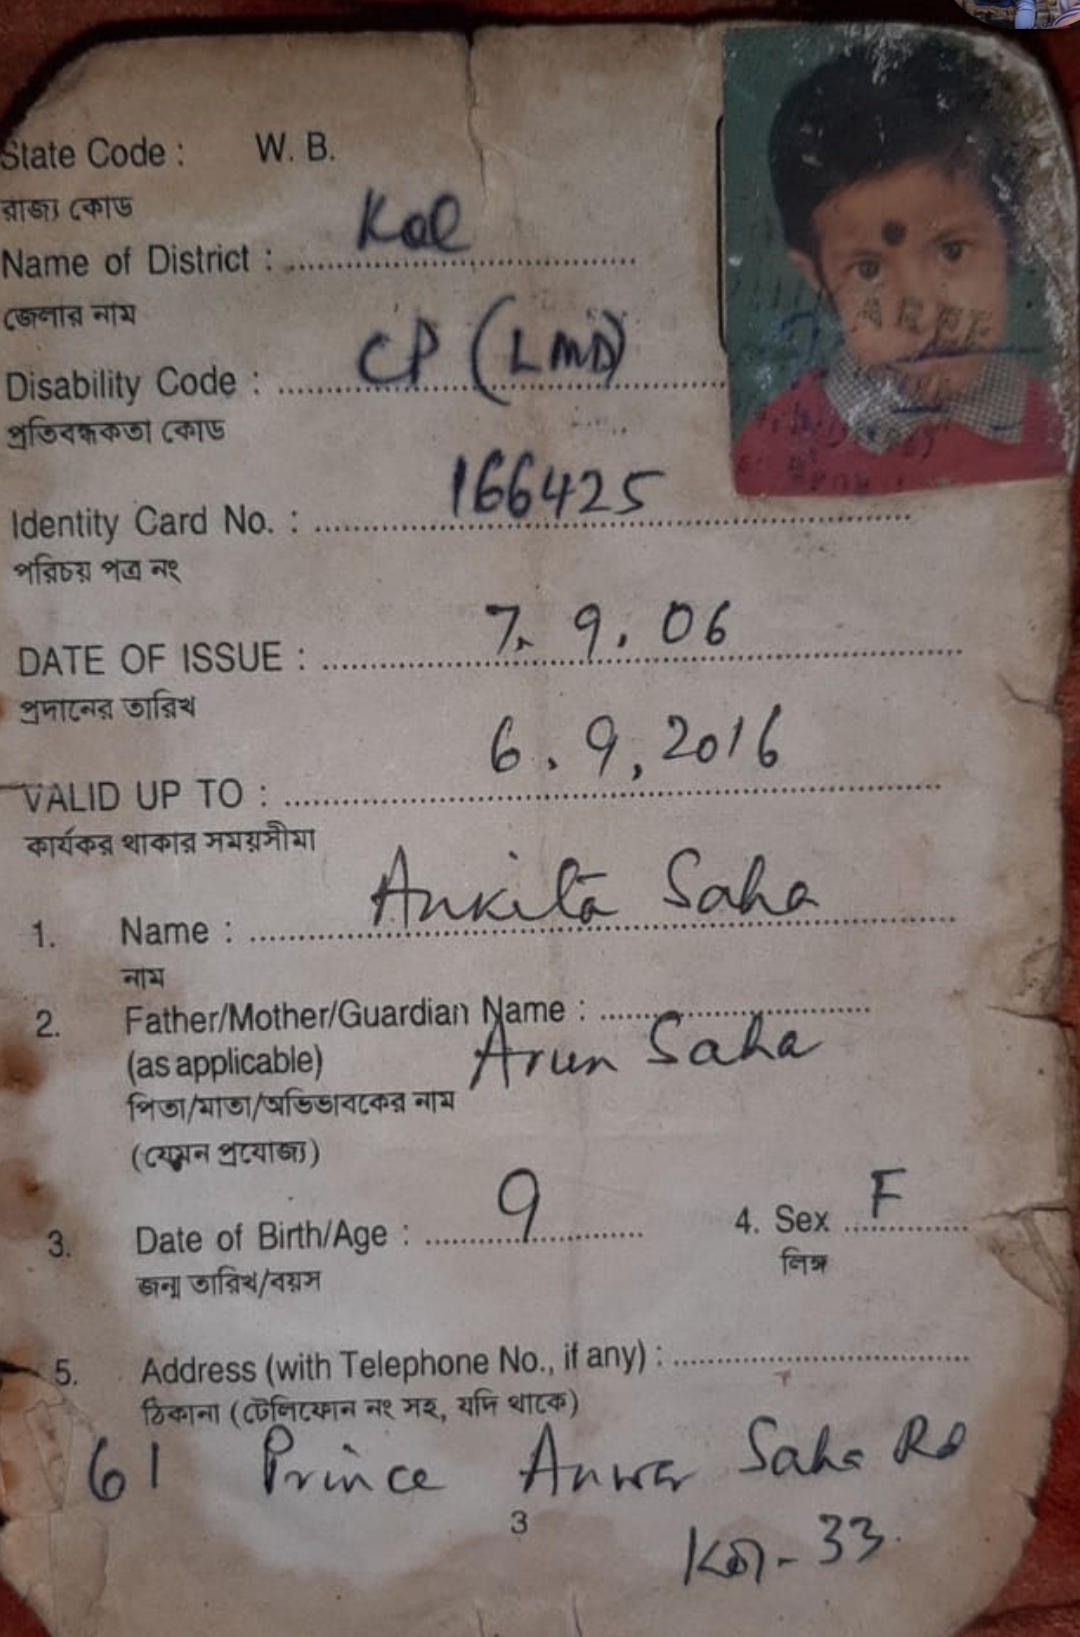 State Code : W. B.
রাজ্য কোড
Name of District : Kol
জেলার নাম
Disability Code : CP (LMD)
প্রতিবন্ধকতা কোড
Identity Card No. : 166425
পরিচয় পত্র নং
DATE OF ISSUE : 7. 9. 06
প্রদানের তারিখ
VALID UP TO : 6. 9, 2016
কার্যকর থাকার সময়সীমা
1. Name : Ankita Saha
নাম
2. Father/Mother/Guardian Name :
(as applicable) Arun Saha
পিতা/মাতা/অভিভাবকের নাম
(যেমন প্রযোজ্য)
3. Date of Birth/Age : 9 4. Sex F
জন্ম তারিখ/বয়স লিঙ্গ
5. Address (with Telephone No., if any) :
ঠিকানা (টেলিফোন নং সহ, যদি থাকে)
61 Prince Anwar Saha Rd
3
Kol - 33.